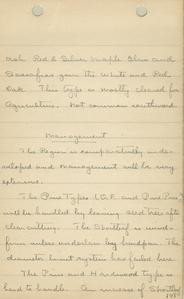 ash Red & Silver Maple Elm and
Sassafras grow the White and Red
Oak. This type is mostly cleared for
Agriculture. Not common southward.
Management
The Region is comparatively unde-
veloped and management will be very
extensive.
The Pine Types and Pure Pine
will be handled by leaving seed trees after
clear cutting. The Shortleaf is wind-
firm unless underlain by hardpan. The
diameter limit system has failed here.
The Pine and Hardwood type is
hard to handle. An increase of Shortleaf